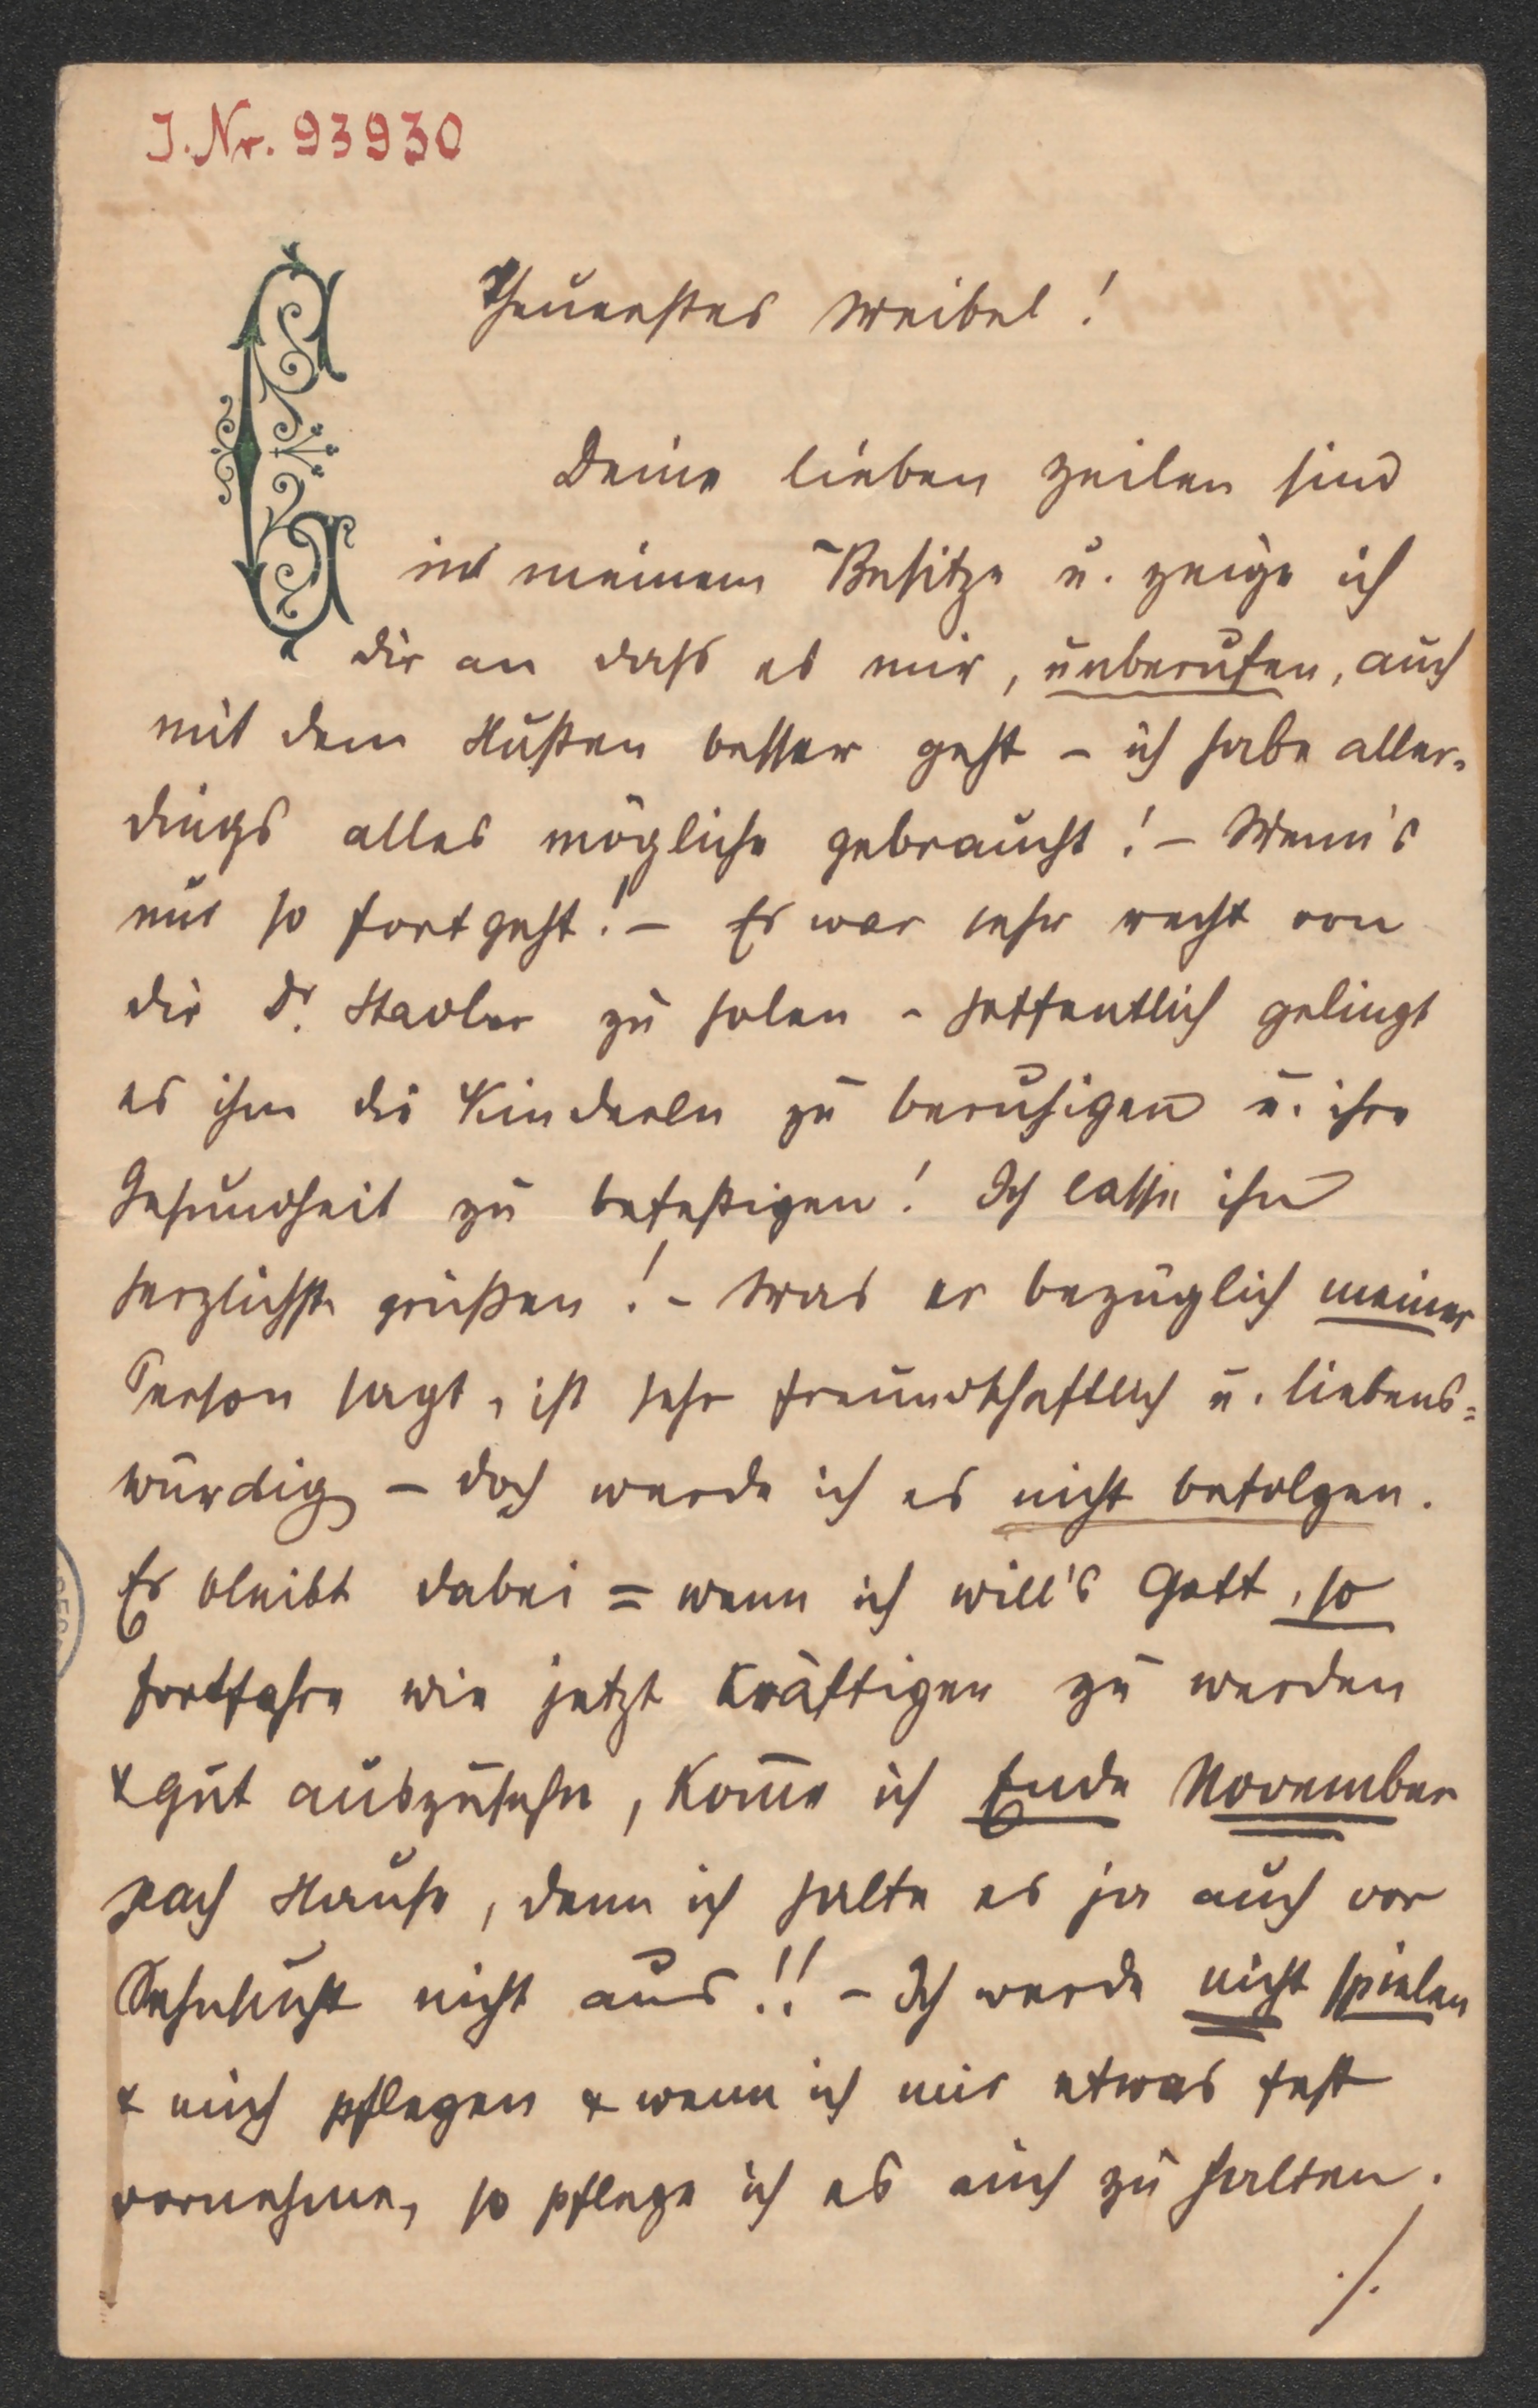 J. Nr. 93930
Theuerstes Weibel!
Deine lieben Zeilen sind
in meinem Besitze u. zeige ich
dir an daß es mir, unberufen, auch
mit dem Husten besser geht – ich habe aller-
dings alles mögliche gebraucht! – Wenn's
nur so fortgeht! – Es war sehr recht von
dir Dr. Stadler zu holen – hoffentlich gelingt
es ihm die Kinderln zu beruhigen u. ihre
Gesundheit zu befestigen! Ich lasse ihn
herzlichst grüßen! – Was er bezüglich meiner
Person sagt, ist sehr freundschaftlich u. liebens-
würdig – doch werde ich es nicht befolgen.
Es bleibt dabei = wenn ich will's Gott, so
fortfahre wie jetzt kräftiger zu werden
& gut auszusehn, kom̄e ich Ende November
nach Hause, denn ich halte es ja auch vor
Sehnsucht nicht aus!! – Ich werde nicht spielen
& mich pflegen & wenn ich mir etwas fest
vornehme, so pflege ich es auch zu halten.
./.